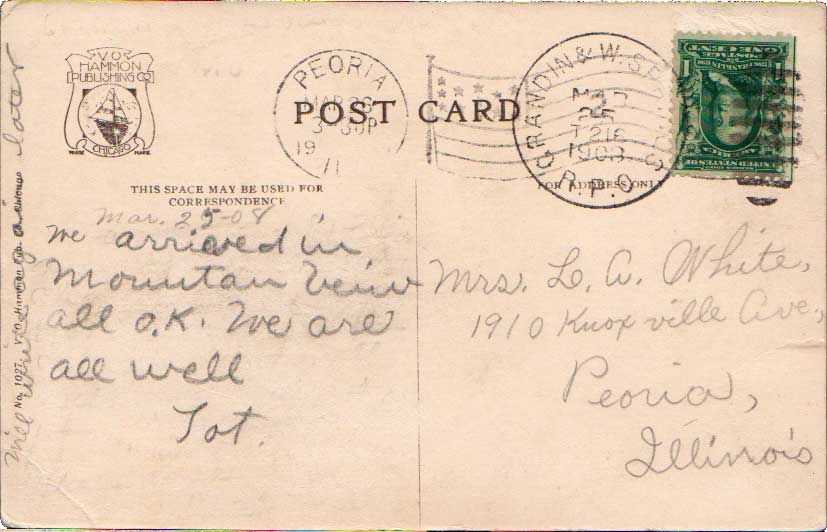 V.O.
HAMMON
PUBLISHING CO
CHICAGO
TRADE MARK
PEORIA
MAR 26
3-30P
19
11
POST CARD
GRANDIN & W.
MAR
25
T 216
1908
R.P.O.
ONE CENT
1
1
UNITED STATES OF AMERICA
THIS SPACE MAY BE USED FOR
CORRESPONDENCE
FOR ADDRESS ONLY
Mar. 25-08
We arrived in
Mountan Veiw
all O.K. We are
all well
Tot.
Will write later
No. 1027. V. O. Hammon Pub. Co.
Mrs. L. A. White,
1910 Knoxville Ave.,
Peoria,
Illinois